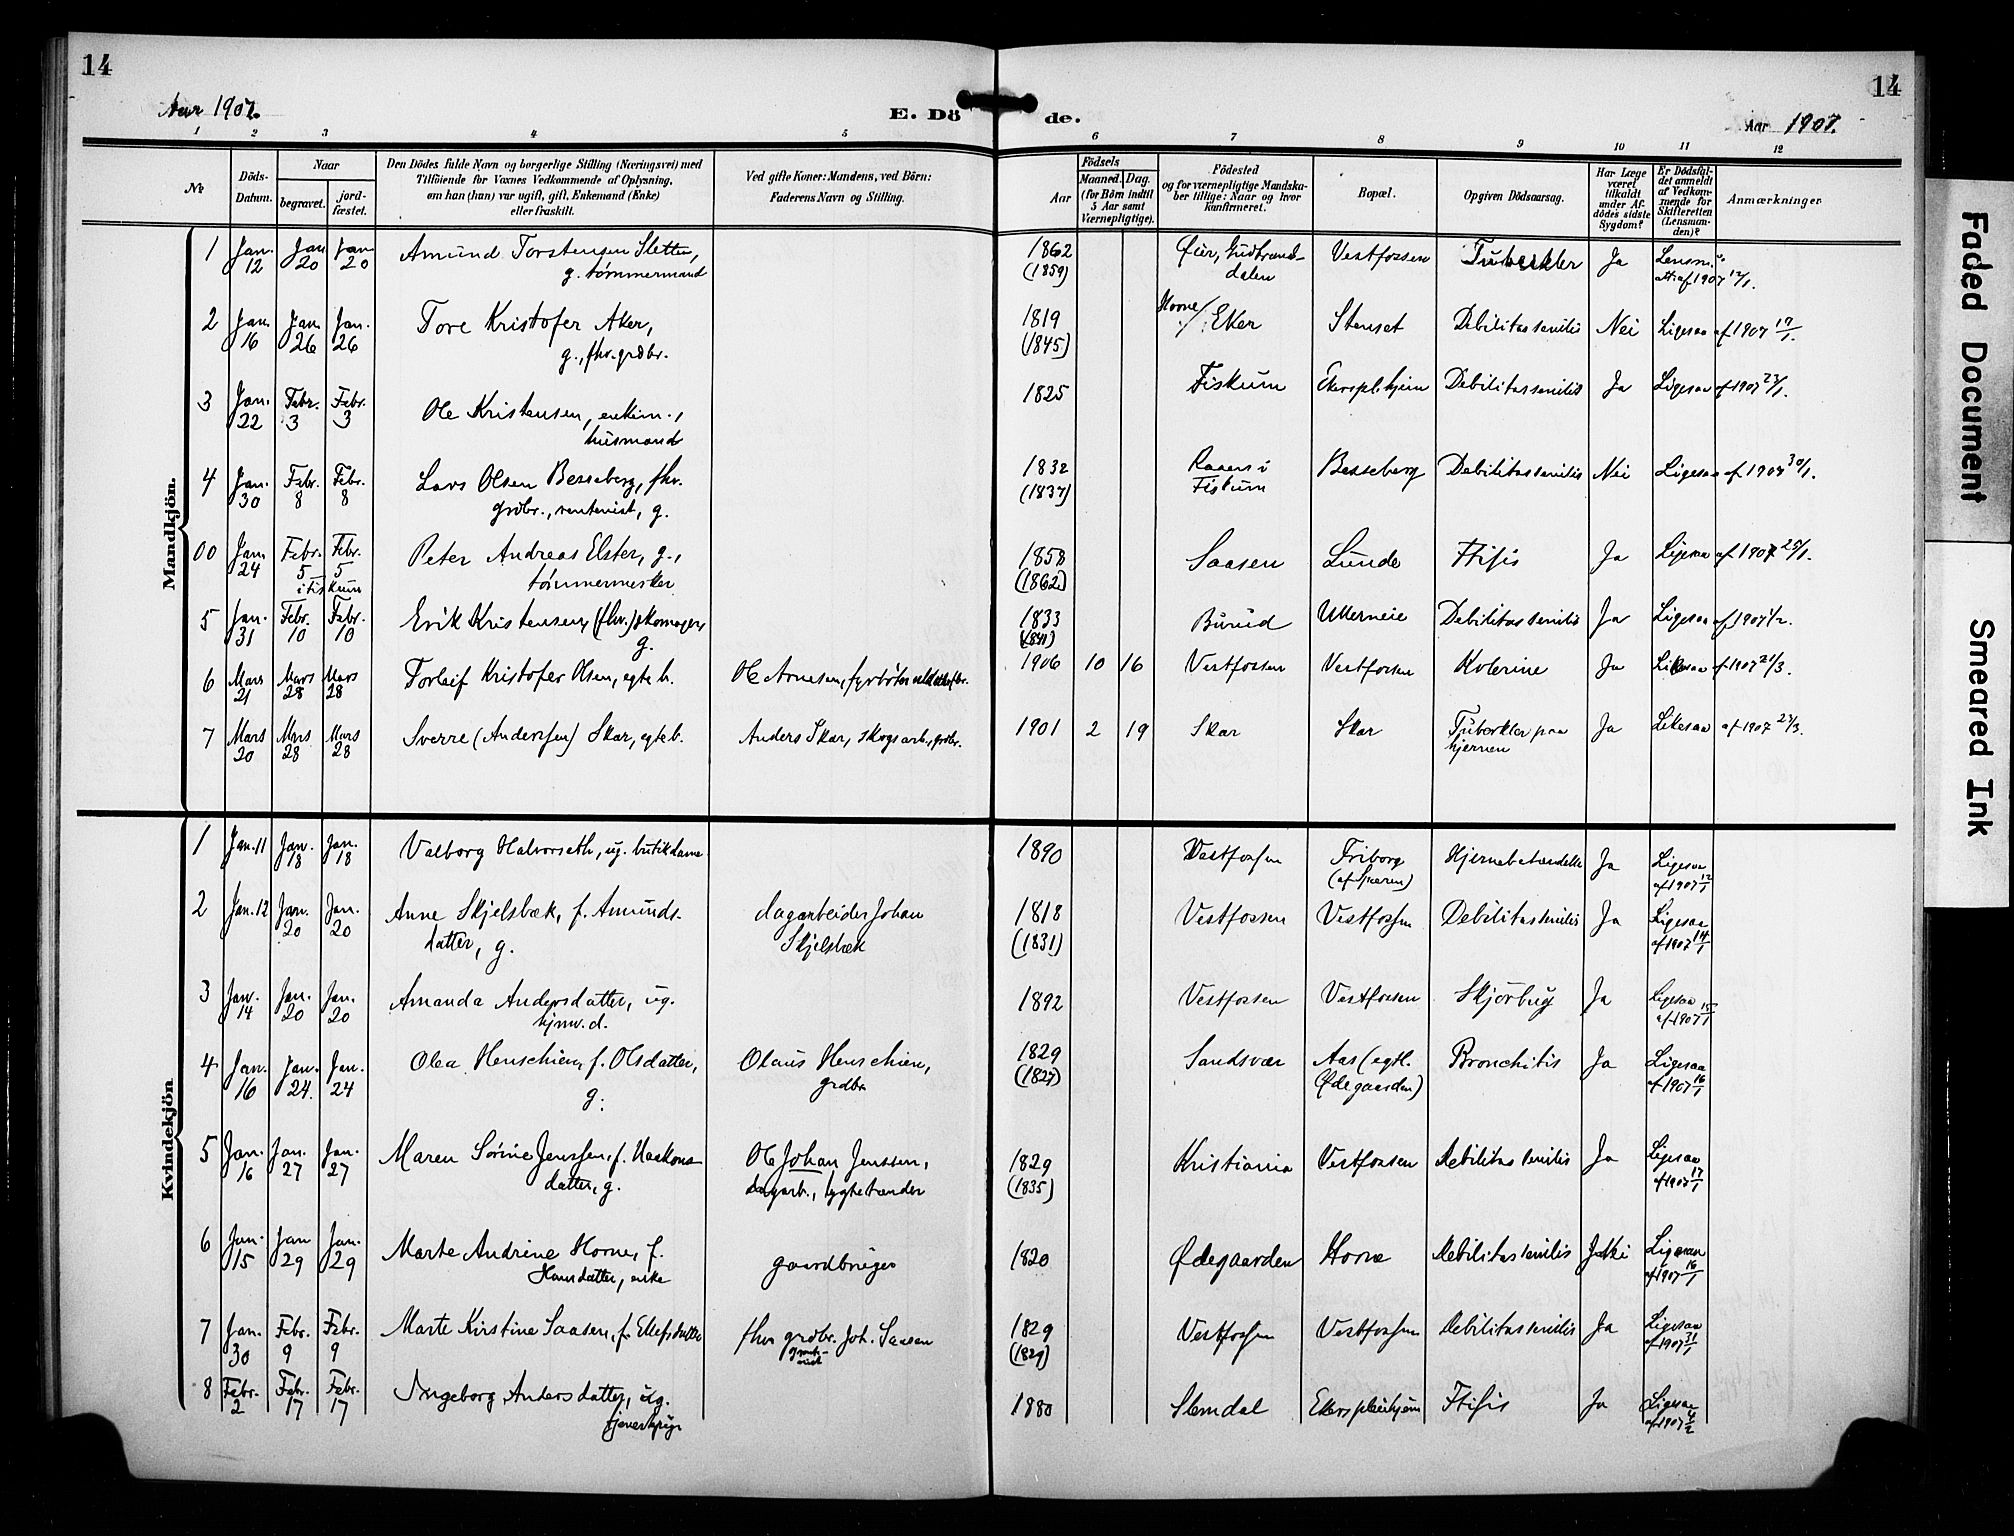 14
14
Aar 1907.
E. Döde.
Aar 1907.
1 2 3 4 5 6 7 8 9 10 11 12
№
Döds-Datum.
Naar
begravet.
jord-fæstet.
Den Dödes fulde Navn og borgerlige Stilling (Næringsvei) med
Tilföiende for Voxnes Vedkommende af Oplysning,
om han (hun) var ugift, gift, Enkemand (Enke)
eller fraskilt.
Ved gifte Koner: Mandens, ved Börn:
Faderens Navn og Stilling.
Födsels
Aar
Maaned. Dag
(for Börn indtil
5 Aar samt
Værnepligtige).
Födested
og for værnepligtige Mandska-
ber tillige: Naar og hvor
konfirmeret.
Bopæl.
Opgiven Dödsaarsag.
Har Læge
været
tilkaldt
under Af-
dödes sidste
Sygdom?
Er Dödsfal-
det anmeldt
af Vedkom-
mende for
Skifteretten
(Lensman-
den)?
Anmærkninger
Mandkjön.
1 Jan. 12 Jan 20 Jan 20 Amund Torstensen Sletten, 1862 Øier, Gudbrands- Vestfossen Tuberkler Ja Lensm.
g. tømmermand (1859) dalen att. af 1907 12/1.
2 Jan. 16 Jan. 26 Jan. 26 Tore Kristofer Aker, 1819 Horne / Eker Stenset Debilitas senilis Nei Ligesaa af 1907 17/1.
g., fhv. grdbr. (1845)
3 Jan. 22 Febr. 3 Febr. 3 Ole Kristensen, enkem., 1825 Fiskum Ekers plhjem Debilitas senilis Ja Ligesaa af 1907 22/1.
husmand
4 Jan. 30 Febr. 8 Febr. 8 Lars Olsen Besseberg, fhv. 1832 i Besseberg Debilitas senilis Nei Ligesaa af 1907 30/1.
grdbr., rentenist, g. (1837) Fiskum
00 Jan. 24 Febr. 5 Febr. 5 Peter Andreas Elster, g., 1858 Saasen Lunde Ftisis Ja Ligesaa af 1907 25/1.
i Fiskum tømmermester (1862)
5 Jan. 31 Febr. 10 Febr. 10 Erik Kristensen, (fhv.) skomager, 1833 Burud Ullerneie Debilitas senilis Ja Ligesaa af 1907 1/2.
g. (1841)
6 Mars 21 Mars 28 Mars 28 Torleif Kristofer Olsen, egte b. Ole Arnesen, fyrbøter 1906 10 16 Vestfossen Vestfossen Kolerine Ja Likesaa af 1907 21/3.
7 Mars 20 Mars 28 Mars 28 Sverre (Andersen) Skar, egte b. Anders Skar, skogsarb., grdbr. 1901 2 19 Skar Skar Tuberkler paa Ja Likesaa af 1907 23/3.
hjernen
Kvindekjön
1 Jan. 11 Jan. 18 Jan. 18 Valborg Halvorseth, ug. butikdame 1890 Vestfossen Friborg Hjernebetændelse Ja Ligesaa
(af Speren) af 1907 12/1
2 Jan. 12 Jan. 20 Jan. 20 Anne Skjelsbæk, f. Amunds- dagarbeider Johan 1818 Vestfossen Vestfossen Debilitas senilis Ja Ligesaa
datter, g. Skjelsbæk (1831) af 1907 14/1
3 Jan. 14 Jan. 20 Jan. 20 Amanda Andersdatter, ug. 1892 Vestfossen Vestfossen Skjørbug Ja Ligesaa
hjmv. d. af 1907 15/1
4 Jan. 16 Jan. 24. Jan. 24 Olea Henschien, f. Olsdatter, Olaus Henschien, 1829 Sandsvær Aas (egtl. Bronchitis Ja Ligesaa
g. grdbr (1827) Ødegaarden) af 1907 16/1
5 Jan. 16 Jan. 27 Jan. 27 Maren Sørine Jenssen, f. Haakons- Ole Johan Jenssen, 1829 Kristiania Vestfossen Debilitas senilis Ja Ligesaa
datter, g. dagarb., lygtetænder (1835) af 1907 17/1
6 Jan. 15 Jan 29 Jan. 29 Marte Andrine Horne, f. 1820 Ødegaarden Horne Debilitas senilis Nei Ligesaa
Hansdatter, enke gaardbruger af 1907 16/1
7 Jan. 30 Febr. 9 Febr. 9 Marte Kirstine Saasen, f. Ellefsdatter fhv. grdbr. Joh. Saasen 1829 Vestfossen Vestfossen Debilitas senilis Ja Ligesaa
(1829) af 1907 31/1
8 Febr. 2 Febr. 17 Febr. 17 Ingeborg Andersdatter, ug. 1880 Slemdal Ekers pleiehjem Ftisis Ja Ligesaa
tjenestepige af 1907 4/2
Faded Document
Smeared Ink